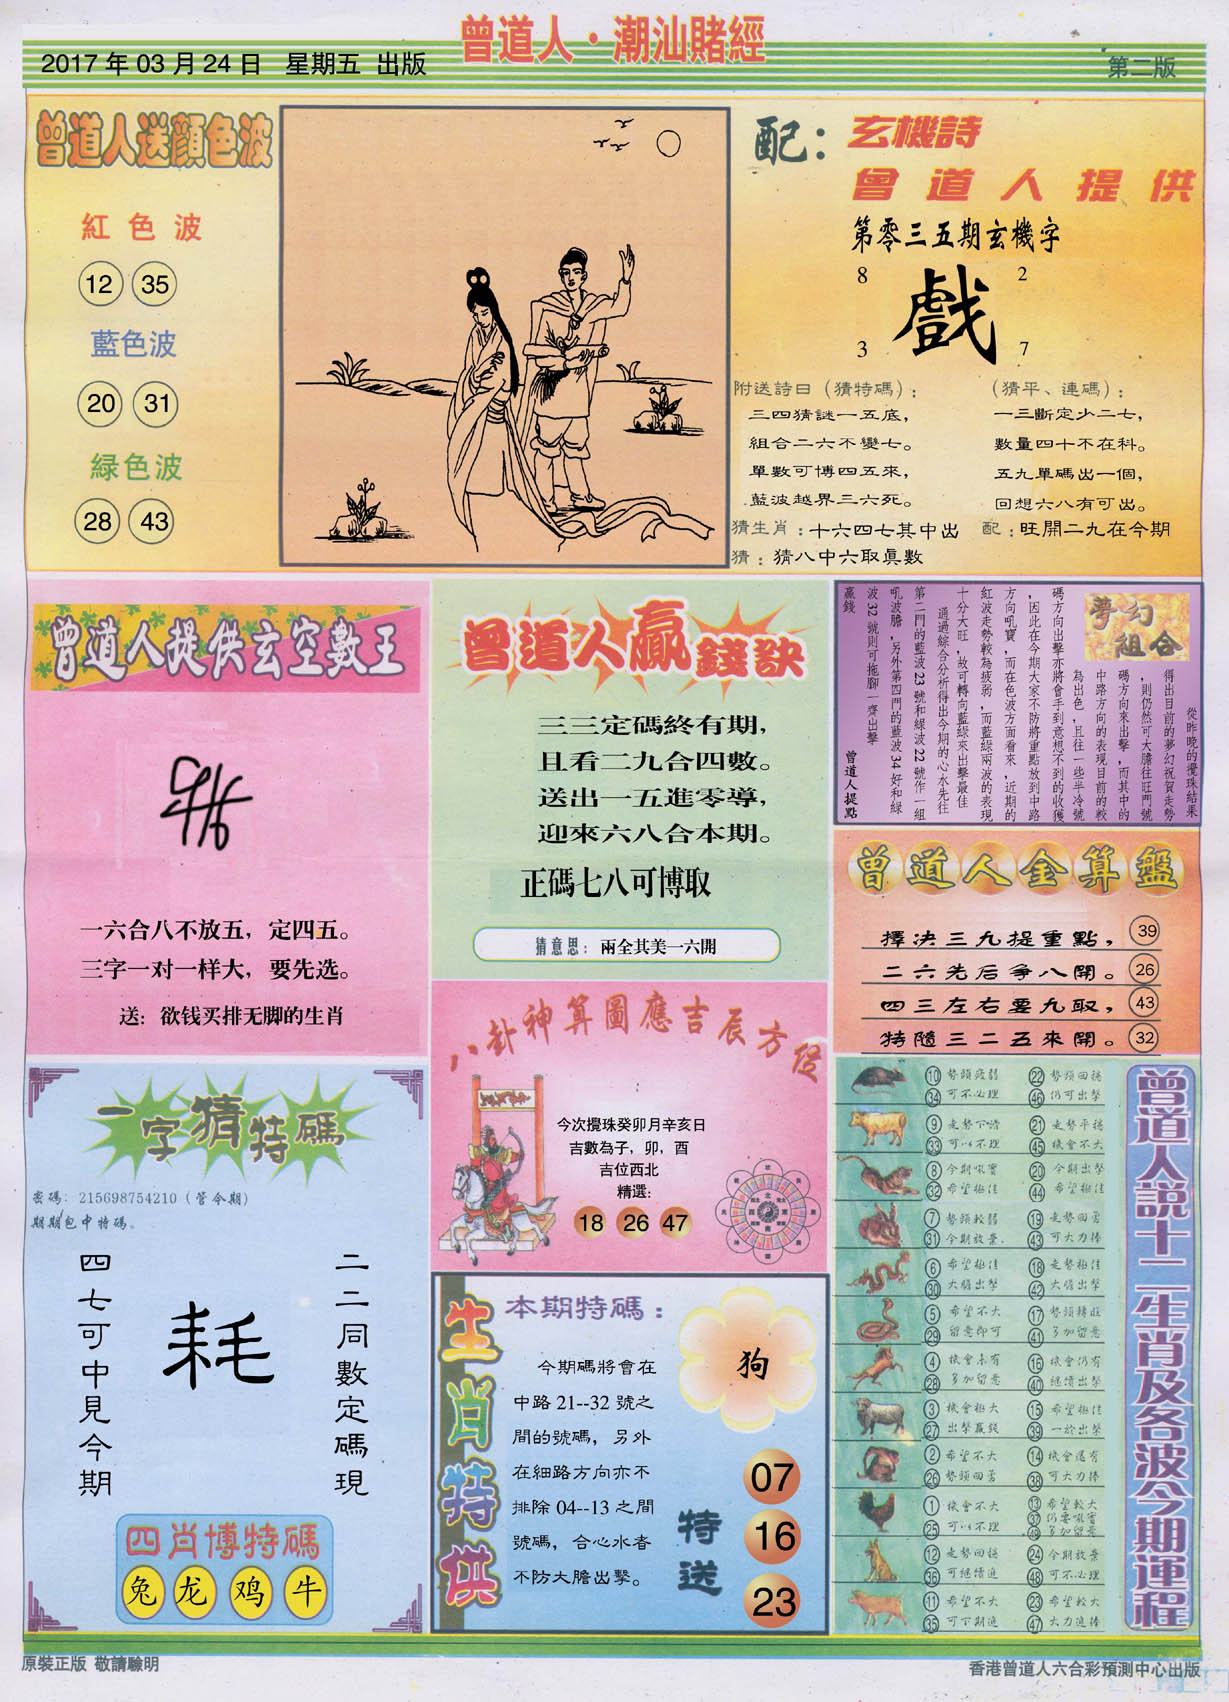 曾道人·潮汕賭經
2017 年 03 月 24 日 星期五 出版
第二版
曾道人送顏色波
紅色波
12 35
藍色波
20 31
緑色波
28 43
配：玄機詩
曾道人提供
第零三五期玄機字
8 2
戲
3 7
附送詩曰（猜特碼）：
三四猜謎一五底，
組合二六不變七。
單數可博四五來，
藍波越界三六死。
（猜平、連碼）：
一三斷定少二七，
數量四十不在科。
五九單碼出一個，
回想六八有可出。
猜生肖：十六四七其中出
配：旺開二九在今期
猜：猜八中六取真數
曾道人提供玄空數王
一六合八不放五，定四五。
三字一对一样大，要先选。
送：欲钱买排无脚的生肖
曾道人贏錢訣
三三定碼終有期，
且看二九合四數。
送出一五進零導，
迎來六八合本期。
正碼七八可博取
猜意思：兩全其美一六開
夢幻組合
從昨晚的攪珠結果
得出目前的夢幻祝賀走勢
，則仍然可大膽往旺門號
碼方向來出擊，而其中的
中路方向的表現目前的較
為出色，且往一些半冷號
碼方向出擊亦將會手到意想不到的收獲
，因此在今期大家不防將重點放到中路
方向吼寶，而在色波方面看來，近期的
紅波走勢較為疲弱，而藍綠兩波的表現
十分大旺，故可轉向藍綠來出擊最佳
通過綜合分析得出今期的心水先往
第二門的藍波 23 號和綠波 22 號作一組
吼波膽，另外第四門的藍波 34 好和綠
波 32 號則可拖腳一齊出擊
贏錢
曾道人提點
曾道人金算盤
擇决三九提重點， 39
二六先后争八開。 26
四三左右要九取， 43
特隨三二五來開。 32
八卦神算圖應吉辰方位
今次攪珠癸卯月辛亥日
吉數為子，卯，酉
吉位西北
精選：
18 26 47
一字猜特碼
密碼：215698754210（管今期）
期期包中特碼。
二二同數定碼現
耗
四七可中見今期
四肖博特碼
兔 龙 鸡 牛
生肖特供
本期特碼：
今期碼將會在
中路 21--32 號之
間的號碼，另外
在細路方向亦不
排除 04--13 之間
號碼，合心水者
不防大膽出擊。
狗
特送
07
16
23
曾道人説十二生肖及各波今期運程
10 勢頭疲弱 22 勢頭回穩
34 可不必理 46 仍可出擊
9 走勢下滑 21 走勢平穩
33 可以不理 45 機會不大
8 今期吼寶 20 今期出擊
32 希望極佳 44 希望極佳
7 勢頭較弱 19 走勢回勇
31 今期放棄 43 可大力捧
6 希望極佳 18 走勢極佳
30 大膽出擊 42 大膽出擊
5 希望不大 17 勢頭轉旺
29 留意即可 41 多加留意
4 機會未有 16 機會仍有
28 多加留意 40 繼續出擊
3 機會極大 15 希望極佳
27 出擊贏錢 39 一於出擊
2 希望不大 14 機會還有
26 勢頭回勇 38 可大力捧
1 機會不大 13 希望較大
25 可以不理 37 仍要吼寶
49 多加留意
12 走勢回穩 24 今期放棄
36 可繼續追 48 可不必理
11 希望不大 23 希望較大
35 可下期追 47 大力追捧
原裝正版 敬請驗明
香港曾道人六合彩預測中心出版